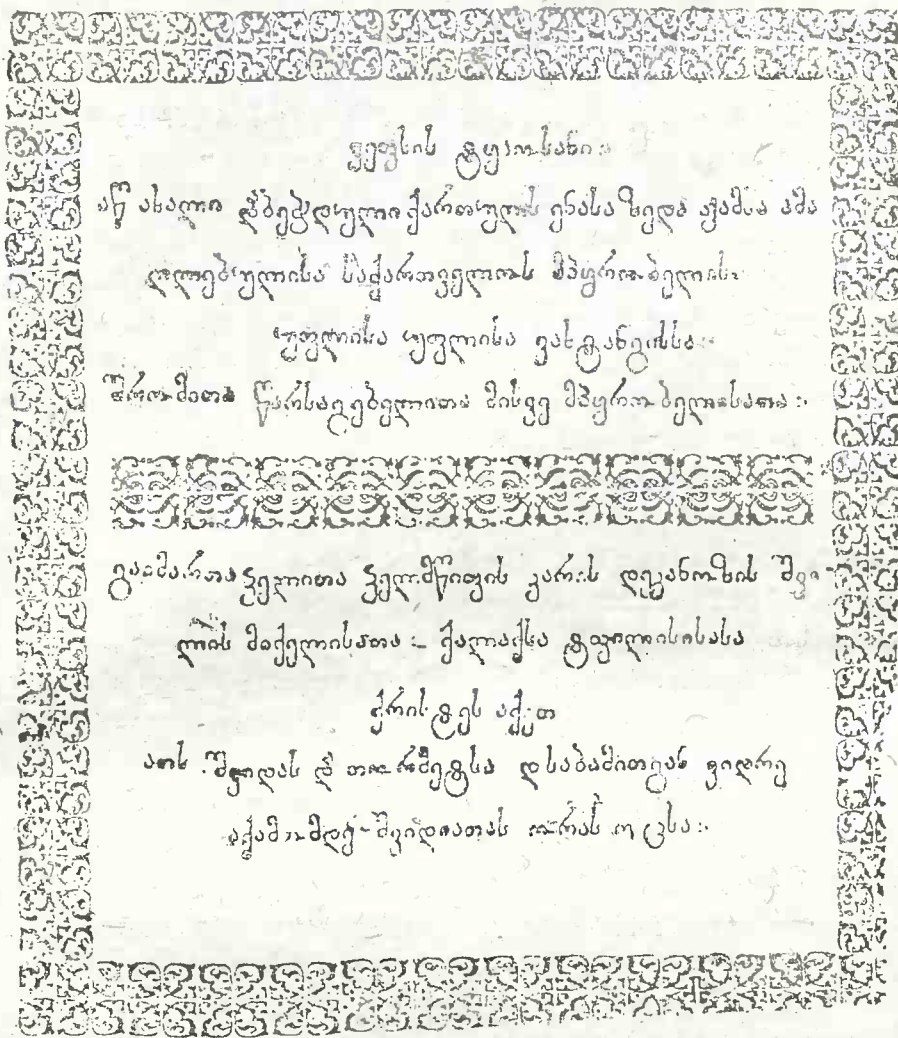 ვეფხის ტყაოსანი:
აწ ახალი დაბეჭდული ქართულს ენასა ზედა ჟამსა ამა
ღლებულისა საქართველოს მპყრობელის:
უფლისა უფლისა ვახტანგისსა:
შრომითა წარსაგებელითა მისვე მპყრობელისათა:
გაიმართა ჴელითა ჴელმწიფის კარის დეკანოზის შვი
ლის მიქელისათა: ქალაქსა ტფილისისასა
ქრისტეს აქეთ
ათას შვიდას და თორმეტსა დასაბამითგან ვიდრე
აქამომდე შვიდიათას ორას ოცსა: